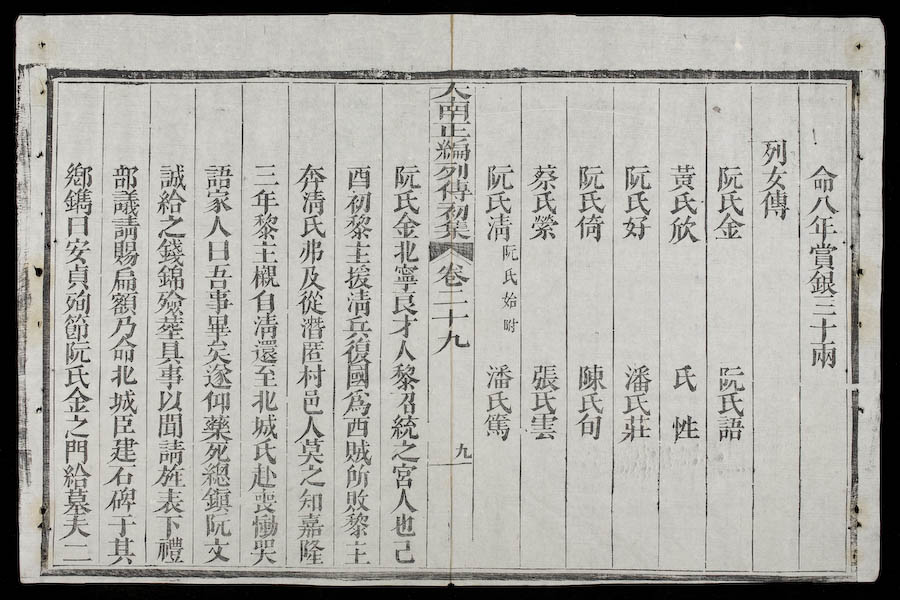 命八年賞銀三十兩
列女傳
阮氏金 阮氏語
黃氏欣 氏性
阮氏好 潘氏莊
阮氏倚 陳氏旬
蔡氏縈 張氏雲
阮氏清 阮氏始附 潘氏篤
大南正編列傳初集 卷二十九 九
阮氏金北寧良才人黎召統之宮人也己
酉初黎主援清兵復國爲西賊所敗黎主
奔清氏弗及從潛匿村邑人莫之知嘉隆
三年黎主櫬自清還至北城氏赴喪慟哭
語家人曰吾事畢矣遂仰藥死總鎮阮文
誠給之錢錦殮塟具事以聞請旌表下禮
部議請賜扁額乃命北城臣建石碑于其
鄉鐫曰安貞殉節阮氏金之門給墓夫二